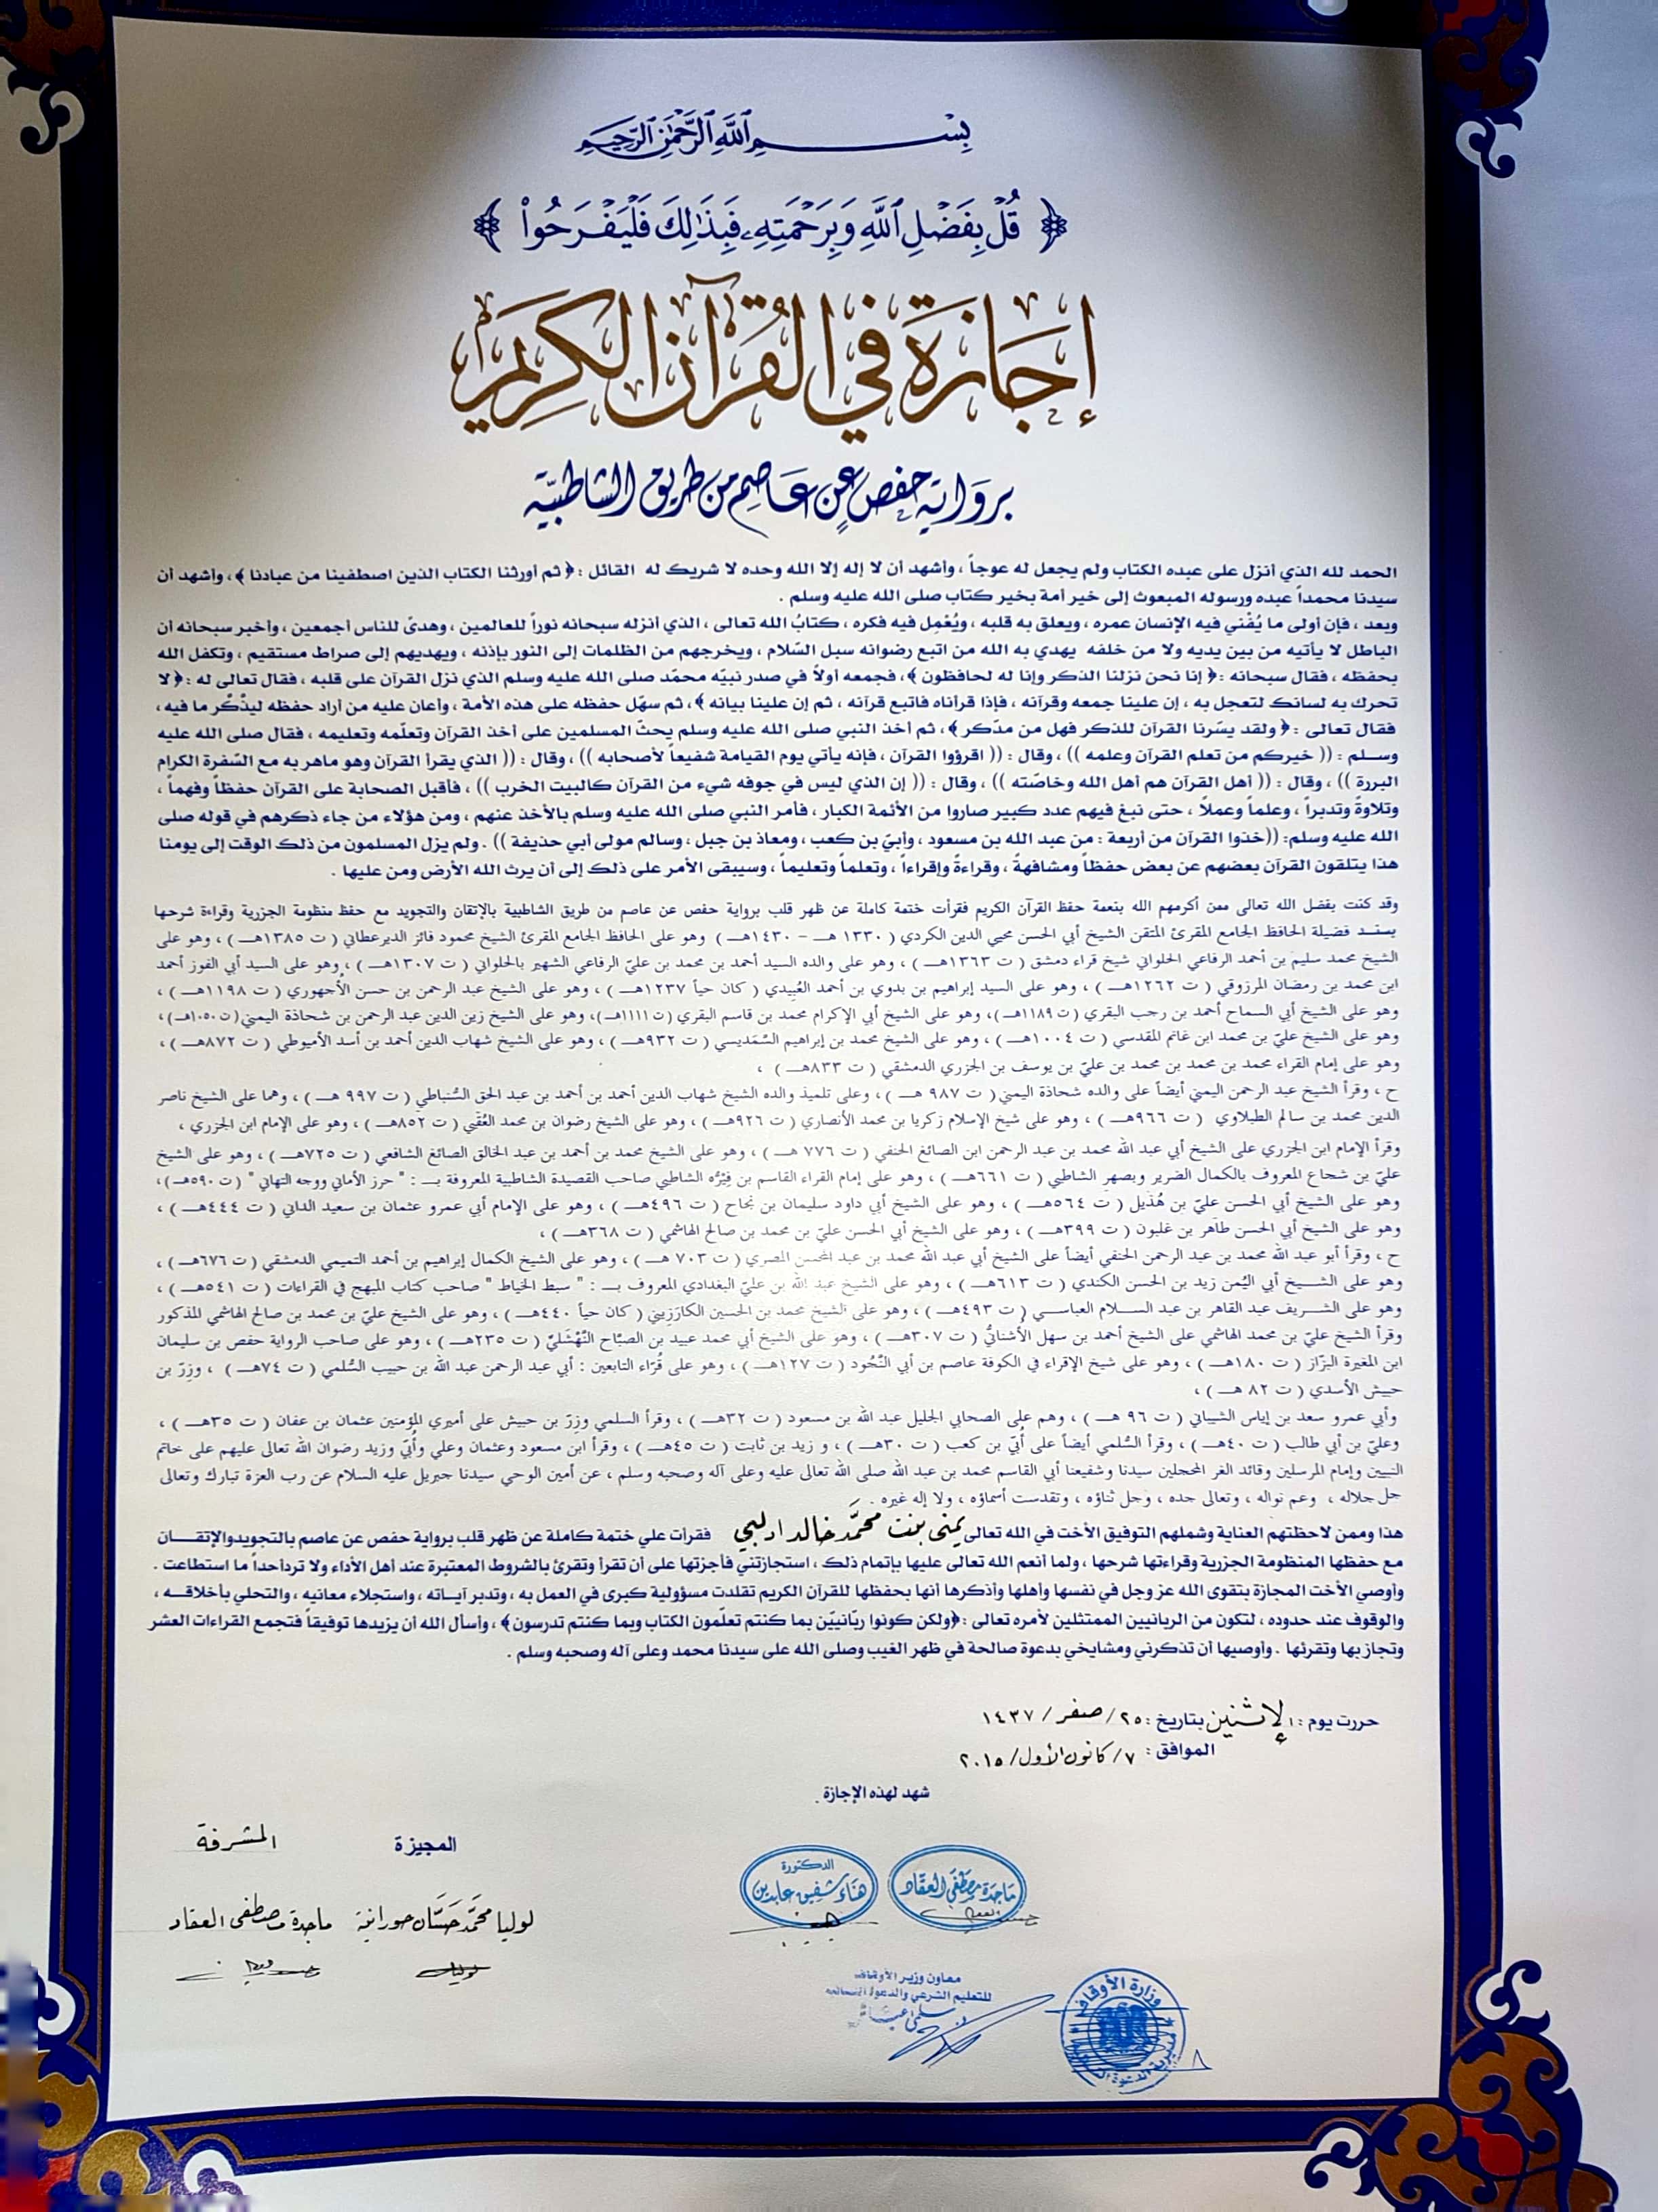 بِسْمِ اللَّهِ الرَّحْمَٰنِ الرَّحِيمِ
﴿ قُلْ بِفَضْلِ ٱللَّهِ وَبِرَحْمَتِهِۦ فَبِذَٰلِكَ فَلْيَفْرَحُوا۟ ﴾
إجازة في القرآن الكريم
برواية حفص عن عاصم من طريق الشاطبيّة
الحمد لله الذي أنزل على عبده الكتاب ولم يجعل له عوجاً ، وأشهد أن لا إله إلا الله وحده لا شريك له القائل : ﴿ ثم أورثنا الكتاب الذين اصطفينا من عبادنا ﴾ ، وأشهد أن
سيدنا محمداً عبده ورسوله المبعوث إلى خير أمة بخير كتاب صلى الله عليه وسلم .
وبعد ، فإن أولى ما يُفْني فيه الإنسان عمره ، ويعلق به قلبه ، ويُعْمِل فيه فكره ، كتابُ الله تعالى ، الذي أنزله سبحانه نوراً للعالمين ، وهدىً للناس أجمعين ، وأخبر سبحانه أن
الباطل لا يأتيه من بين يديه ولا من خلفه يهدي به الله من اتبع رضوانه سبل السّلام ، ويخرجهم من الظلمات إلى النور بإذنه ، ويهديهم إلى صراط مستقيم ، وتكفل الله
بحفظه ، فقال سبحانه : ﴿ إنا نحن نزلنا الذكر وإنا له لحافظون ﴾ ، فجمعه أولاً في صدر نبيّه محمّد صلى الله عليه وسلم الذي نزل القرآن على قلبه ، فقال تعالى له : ﴿ لا
تحرك به لسانك لتعجل به ، إن علينا جمعه وقرآنه ، فإذا قرأناه فاتبع قرآنه ، ثم إن علينا بيانه ﴾ ، ثم سهّل حفظه على هذه الأمة ، وأعان عليه من أراد حفظه ليذّكّر ما فيه ،
فقال تعالى : ﴿ ولقد يسّرنا القرآن للذكر فهل من مدّكر ﴾ ، ثم أخذ النبي صلى الله عليه وسلم يحثّ المسلمين على أخذ القرآن وتعلّمه وتعليمه ، فقال صلى الله عليه
وسلم : (( خيركم من تعلم القرآن وعلمه )) ، وقال : (( اقرؤوا القرآن ، فإنه يأتي يوم القيامة شفيعاً لأصحابه )) ، وقال : (( الذي يقرأ القرآن وهو ماهر به مع السّفرة الكرام
البررة )) ، وقال : (( أهل القرآن هم أهل الله وخاصّته )) ، وقال : (( إن الذي ليس في جوفه شيء من القرآن كالبيت الخرب )) ، فأقبل الصحابة على القرآن حفظاً وفهماً ،
وتلاوةً وتدبراً ، وعلماً وعملاً ، حتى نبغ فيهم عدد كبير صاروا من الأئمة الكبار ، فأمر النبي صلى الله عليه وسلم بالأخذ عنهم ، ومن هؤلاء من جاء ذكرهم في قوله صلى
الله عليه وسلم: ((خذوا القرآن من أربعة : من عبد الله بن مسعود ، وأبيّ بن كعب ، ومعاذ بن جبل ، وسالم مولى أبي حذيفة )) . ولم يزل المسلمون من ذلك الوقت إلى يومنا
هذا يتلقون القرآن بعضهم عن بعض حفظاً ومشافهةً ، وقراءةً وإقراءاً ، وتعلماً وتعليماً ، وسيبقى الأمر على ذلك إلى أن يرث الله الأرض ومن عليها .
وقد كنت بفضل الله تعالى ممن أكرمهم الله بنعمة حفظ القرآن الكريم فقرأت ختمة كاملة عن ظهر قلب برواية حفص عن عاصم من طريق الشاطبية بالإتقان والتجويد مع حفظ منظومة الجزرية وقراءة شرحها
بسند فضيلة الحافظ الجامع المقرئ المتقن الشيخ أبي الحسن محيي الدين الكردي ( ١٣٣٠ هـ - ١٤٣٠هـ ) وهو على الحافظ الجامع المقرئ الشيخ محمود فائز الديرعطاني ( ت ١٣٨٥هـ ) ، وهو على
الشيخ محمد سليم بن أحمد الرفاعي الحلواني شيخ قراء دمشق ( ت ١٣٦٣هـ ) ، وهو على والده السيد أحمد بن محمد بن عليّ الرفاعي الشهير بالحلواني ( ت ١٣٠٧هـ ) ، وهو على السيد أبي الفوز أحمد
ابن محمد بن رمضان المرزوقي ( ت ١٢٦٢هـ ) ، وهو على السيد إبراهيم بن بدوي بن أحمد العُبيدي ( كان حياً ١٢٣٧هـ ) ، وهو على الشيخ عبد الرحمن بن حسن الأجهوري ( ت ١١٩٨هـ ) ،
وهو على الشيخ أبي السماح أحمد بن رجب البقري ( ت ١١٨٩هـ ) ، وهو على الشيخ أبي الإكرام محمد بن قاسم البقري ( ت ١١١١هـ ) ، وهو على الشيخ زين الدين عبد الرحمن بن شحاذة اليمني ( ت ١٠٥٠هـ ) ،
وهو على الشيخ عليّ بن محمد ابن غانم المقدسي ( ت ١٠٠٤هـ ) ، وهو على الشيخ محمد بن إبراهيم السّمديسي ( ت ٩٣٢هـ ) ، وهو على الشيخ شهاب الدين أحمد بن أسد الأميوطي ( ت ٨٧٢هـ ) ،
وهو على إمام القراء محمد بن محمد بن محمد بن عليّ بن يوسف بن الجزري الدمشقي ( ت ٨٣٣هـ ) ،
ح ، وقرأ الشيخ عبد الرحمن اليمني أيضاً على والده شحاذة اليمني ( ت ٩٨٧ هـ ) ، وعلى تلميذ والده الشيخ شهاب الدين أحمد بن أحمد بن عبد الحق السُّنباطي ( ت ٩٩٧ هـ ) ، وهما على الشيخ ناصر
الدين محمد بن سالم الطبلاوي ( ت ٩٦٦هـ ) ، وهو على شيخ الإسلام زكريا بن محمد الأنصاري ( ت ٩٢٦هـ ) ، وهو على الشيخ رضوان بن محمد العُقْبي ( ت ٨٥٢هـ ) ، وهو على الإمام ابن الجزري ،
وقرأ الإمام ابن الجزري على الشيخ أبي عبد الله محمد بن عبد الرحمن ابن الصائغ الحنفي ( ت ٧٧٦ هـ ) ، وهو على الشيخ محمد بن أحمد بن عبد الخالق الصائغ الشافعي ( ت ٧٢٥هـ ) ، وهو على الشيخ
عليّ بن شجاع المعروف بالكمال الضرير وبصهر الشاطبي ( ت ٦٦١هـ ) ، وهو على إمام القراء القاسم بن فِيْرُّه الشاطبي صاحب القصيدة الشاطبية المعروفة بـ : " حرز الأماني ووجه التهاني " ( ت ٥٩٠هـ ) ،
وهو على الشيخ أبي الحسن عليّ بن هُذيل ( ت ٥٦٤هـ ) ، وهو على الشيخ أبي داود سليمان بن نجاح ( ت ٤٩٦هـ ) ، وهو على الإمام أبي عمرو عثمان بن سعيد الداني ( ت ٤٤٤هـ ) ،
وهو على الشيخ أبي الحسن طاهر بن غلبون ( ت ٣٩٩هـ ) ، وهو على الشيخ أبي الحسن عليّ بن محمد بن صالح الهاشمي ( ت ٣٦٨هـ ) ،
ح ، وقرأ أبو عبد الله محمد بن عبد الرحمن الحنفي أيضاً على الشيخ أبي عبد الله محمد بن عبد المحسن المصري ( ت ٧٠٣ هـ ) ، وهو على الشيخ الكمال إبراهيم بن أحمد التميمي الدمشقي ( ت ٦٧٦هـ ) ،
وهو على الشيخ أبي اليُمن زيد بن الحسن الكندي ( ت ٦١٣هـ ) ، وهو على الشيخ عبد الله بن عليّ البغدادي المعروف بـ : " سبط الخياط " صاحب كتاب المبهج في القراءات ( ت ٥٤١هـ ) ،
وهو على الشريف عبد القاهر بن عبد السلام العباسي ( ت ٤٩٣هـ ) ، وهو على الشيخ محمد بن الحسين الكارَزِيني ( كان حياً ٤٤٠هـ ) ، وهو على الشيخ عليّ بن محمد بن صالح الهاشمي المذكور
وقرأ الشيخ عليّ بن محمد الهاشمي على الشيخ أحمد بن سهل الأُشنانيُّ ( ت ٣٠٧هـ ) ، وهو على الشيخ أبي محمد عبيد بن الصبّاح النَّهْشَليّ ( ت ٢٣٥هـ ) ، وهو على صاحب الرواية حفص بن سليمان
ابن المغيرة البزّاز ( ت ١٨٠هـ ) ، وهو على شيخ الإقراء في الكوفة عاصم بن أبي النَّجُود ( ت ١٢٧هـ ) ، وهو على قُرّاء التابعين : أبي عبد الرحمن عبد الله بن حبيب السُّلمي ( ت ٧٤هـ ) ، وزِرّ بن
حبيش الأسدي ( ت ٨٢ هـ ) ،
وأبي عمرو سعد بن إياس الشيباني ( ت ٩٦ هـ ) ، وهم على الصحابي الجليل عبد الله بن مسعود ( ت ٣٢هـ ) ، وقرأ السلمي وزِرّ بن حبيش على أميري المؤمنين عثمان بن عفان ( ت ٣٥هـ ) ،
وعليّ بن أبي طالب ( ت ٤٠هـ ) ، وقرأ السُّلمي أيضاً على أُبيّ بن كعب ( ت ٣٠هـ ) ، و زيد بن ثابت ( ت ٤٥هـ ) ، وقرأ ابن مسعود وعثمان وعلي وأُبيّ وزيد رضوان الله تعالى عليهم على خاتم
النبيين وإمام المرسلين وقائد الغر المحجلين سيدنا وشفيعنا أبي القاسم محمد بن عبد الله صلى الله تعالى عليه وعلى آله وصحبه وسلم ، عن أمين الوحي سيدنا جبريل عليه السلام عن رب العزة تبارك وتعالى
جل جلاله ، وعم نواله ، وتعالى جده ، وجل ثناؤه ، وتقدست أسماؤه ، ولا إله غيره .
هذا وممن لاحظتهم العناية وشملهم التوفيق الأخت في الله تعالى يمنى بنت محمّد خالد ادلبي فقرأت علي ختمة كاملة عن ظهر قلب برواية حفص عن عاصم بالتجويد والإتقـان
مع حفظها المنظومة الجزرية وقراءتها شرحها ، ولما أنعم الله تعالى عليها بإتمام ذلك ، استجازتني فأجزتها على أن تقرأ وتقرئ بالشروط المعتبرة عند أهل الأداء ولا ترد أحداً ما استطاعت .
وأوصي الأخت المجازة بتقوى الله عز وجل في نفسها وأهلها وأذكرها أنها بحفظها للقرآن الكريم تقلدت مسؤولية كبرى في العمل به ، وتدبر آيـاته ، واستجلاء معانيه ، والتحلي بأخلاقـه ،
والوقوف عند حدوده ، لتكون من الربانيين الممتثلين لأمره تعالى : ﴿ولكن كونوا ربّانييّن بما كنتم تعلّمون الكتاب وبما كنتم تدرسون﴾ ، وأسأل الله أن يزيدها توفيقاً فتجمع القراءات العشر
وتجاز بها وتقرئها . وأوصيها أن تذكرني ومشايخي بدعوة صالحة في ظهر الغيب وصلى الله على سيدنا محمد وعلى آله وصحبه وسلم .
حررت يوم : الإثنين بتاريخ : ٢٥/ صفر / ١٤٣٧
الموافق : ٧/ كانون الأول/ ٢٠١٥
شهد لهذه الإجازة .
المجيزة المشرفة
ماجدة مصطفى العقاد
الدكتورة
هناء شفيق عابدين
لوليا محمّد حسّان حورانية ماجدة مصطفى العقاد
معاون وزير الأوقاف
للتعليم الشرعي والدعوة النسائية
وزارة الأوقاف